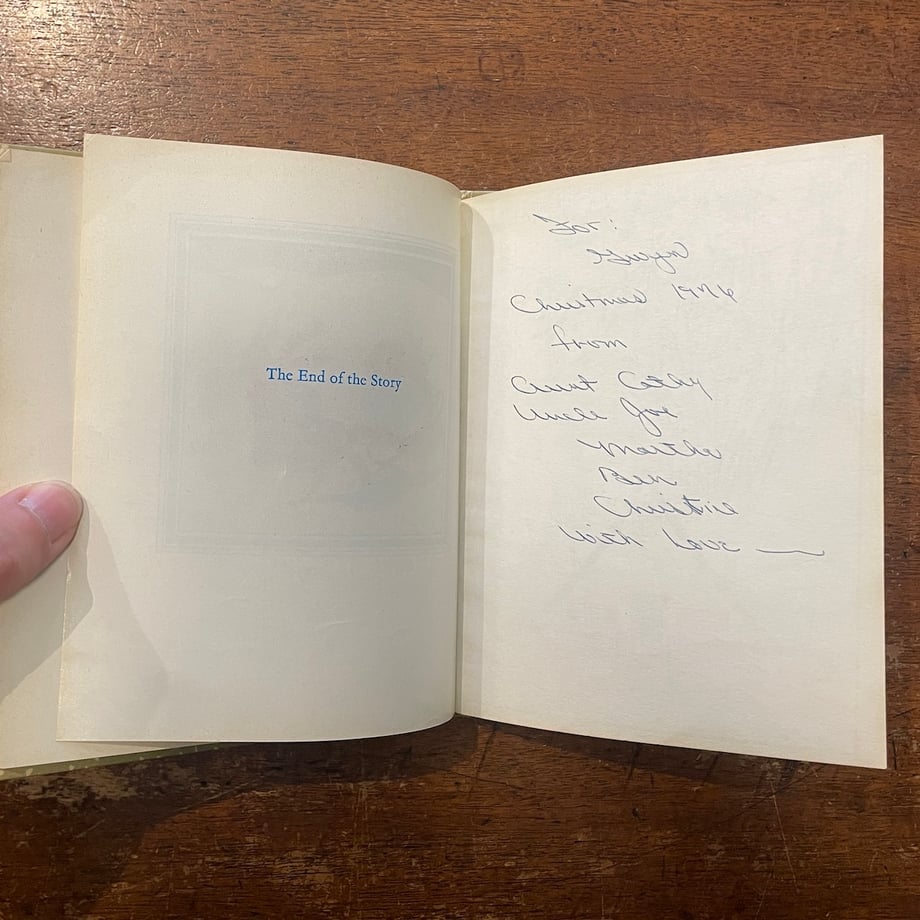 The End of the Story
For:
Gwyn
Christmas 1976
from
Aunt Cathy
Uncle Joe
Martha
Ben
Christine
With Love